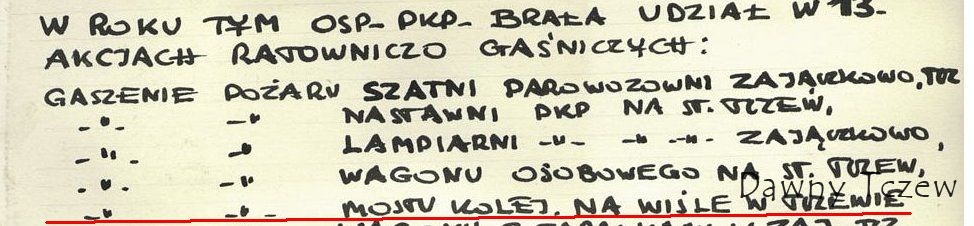 W ROKU TYM OSP- PKP- BRAŁA UDZIAŁ W 13-
AKCJACH RATOWNICZO GAŚNICZYCH:
GASZENIE POŻARU SZATNI PAROWOZOWNI ZAJĄCZKOWO, TCZ
-"- -" NASTAWNI PKP NA ST. TCZEW,
-"- -" LAMPIARNI -"- -" -"- ZAJĄCZKOWO,
-"- -" WAGONU OSOBOWEGO NA ST. TCZEW,
-" -"- MOSTU KOLEJ. NA WIŚLE W TCZEWIE
Dawny Tczew